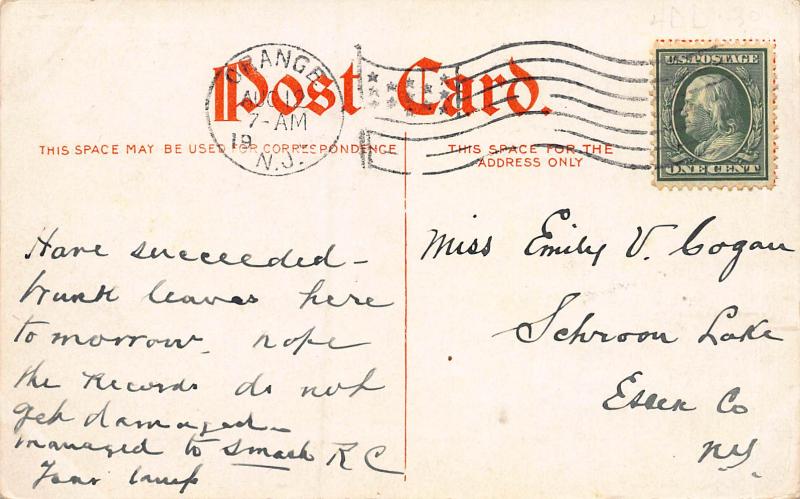 Post Card.
ORANGE
AUG 12
7-AM
19
N.J.
U.S. POSTAGE
ONE CENT
THIS SPACE MAY BE USED FOR CORRESPONDENCE
THIS SPACE FOR THE
ADDRESS ONLY
Have succeeded -
trunk leaves here
tomorrow. hope
the Records do not
get damaged -
managed to smash R C
your lamp
Miss Emily V. Cogan
Schroon Lake
Essex Co
NY